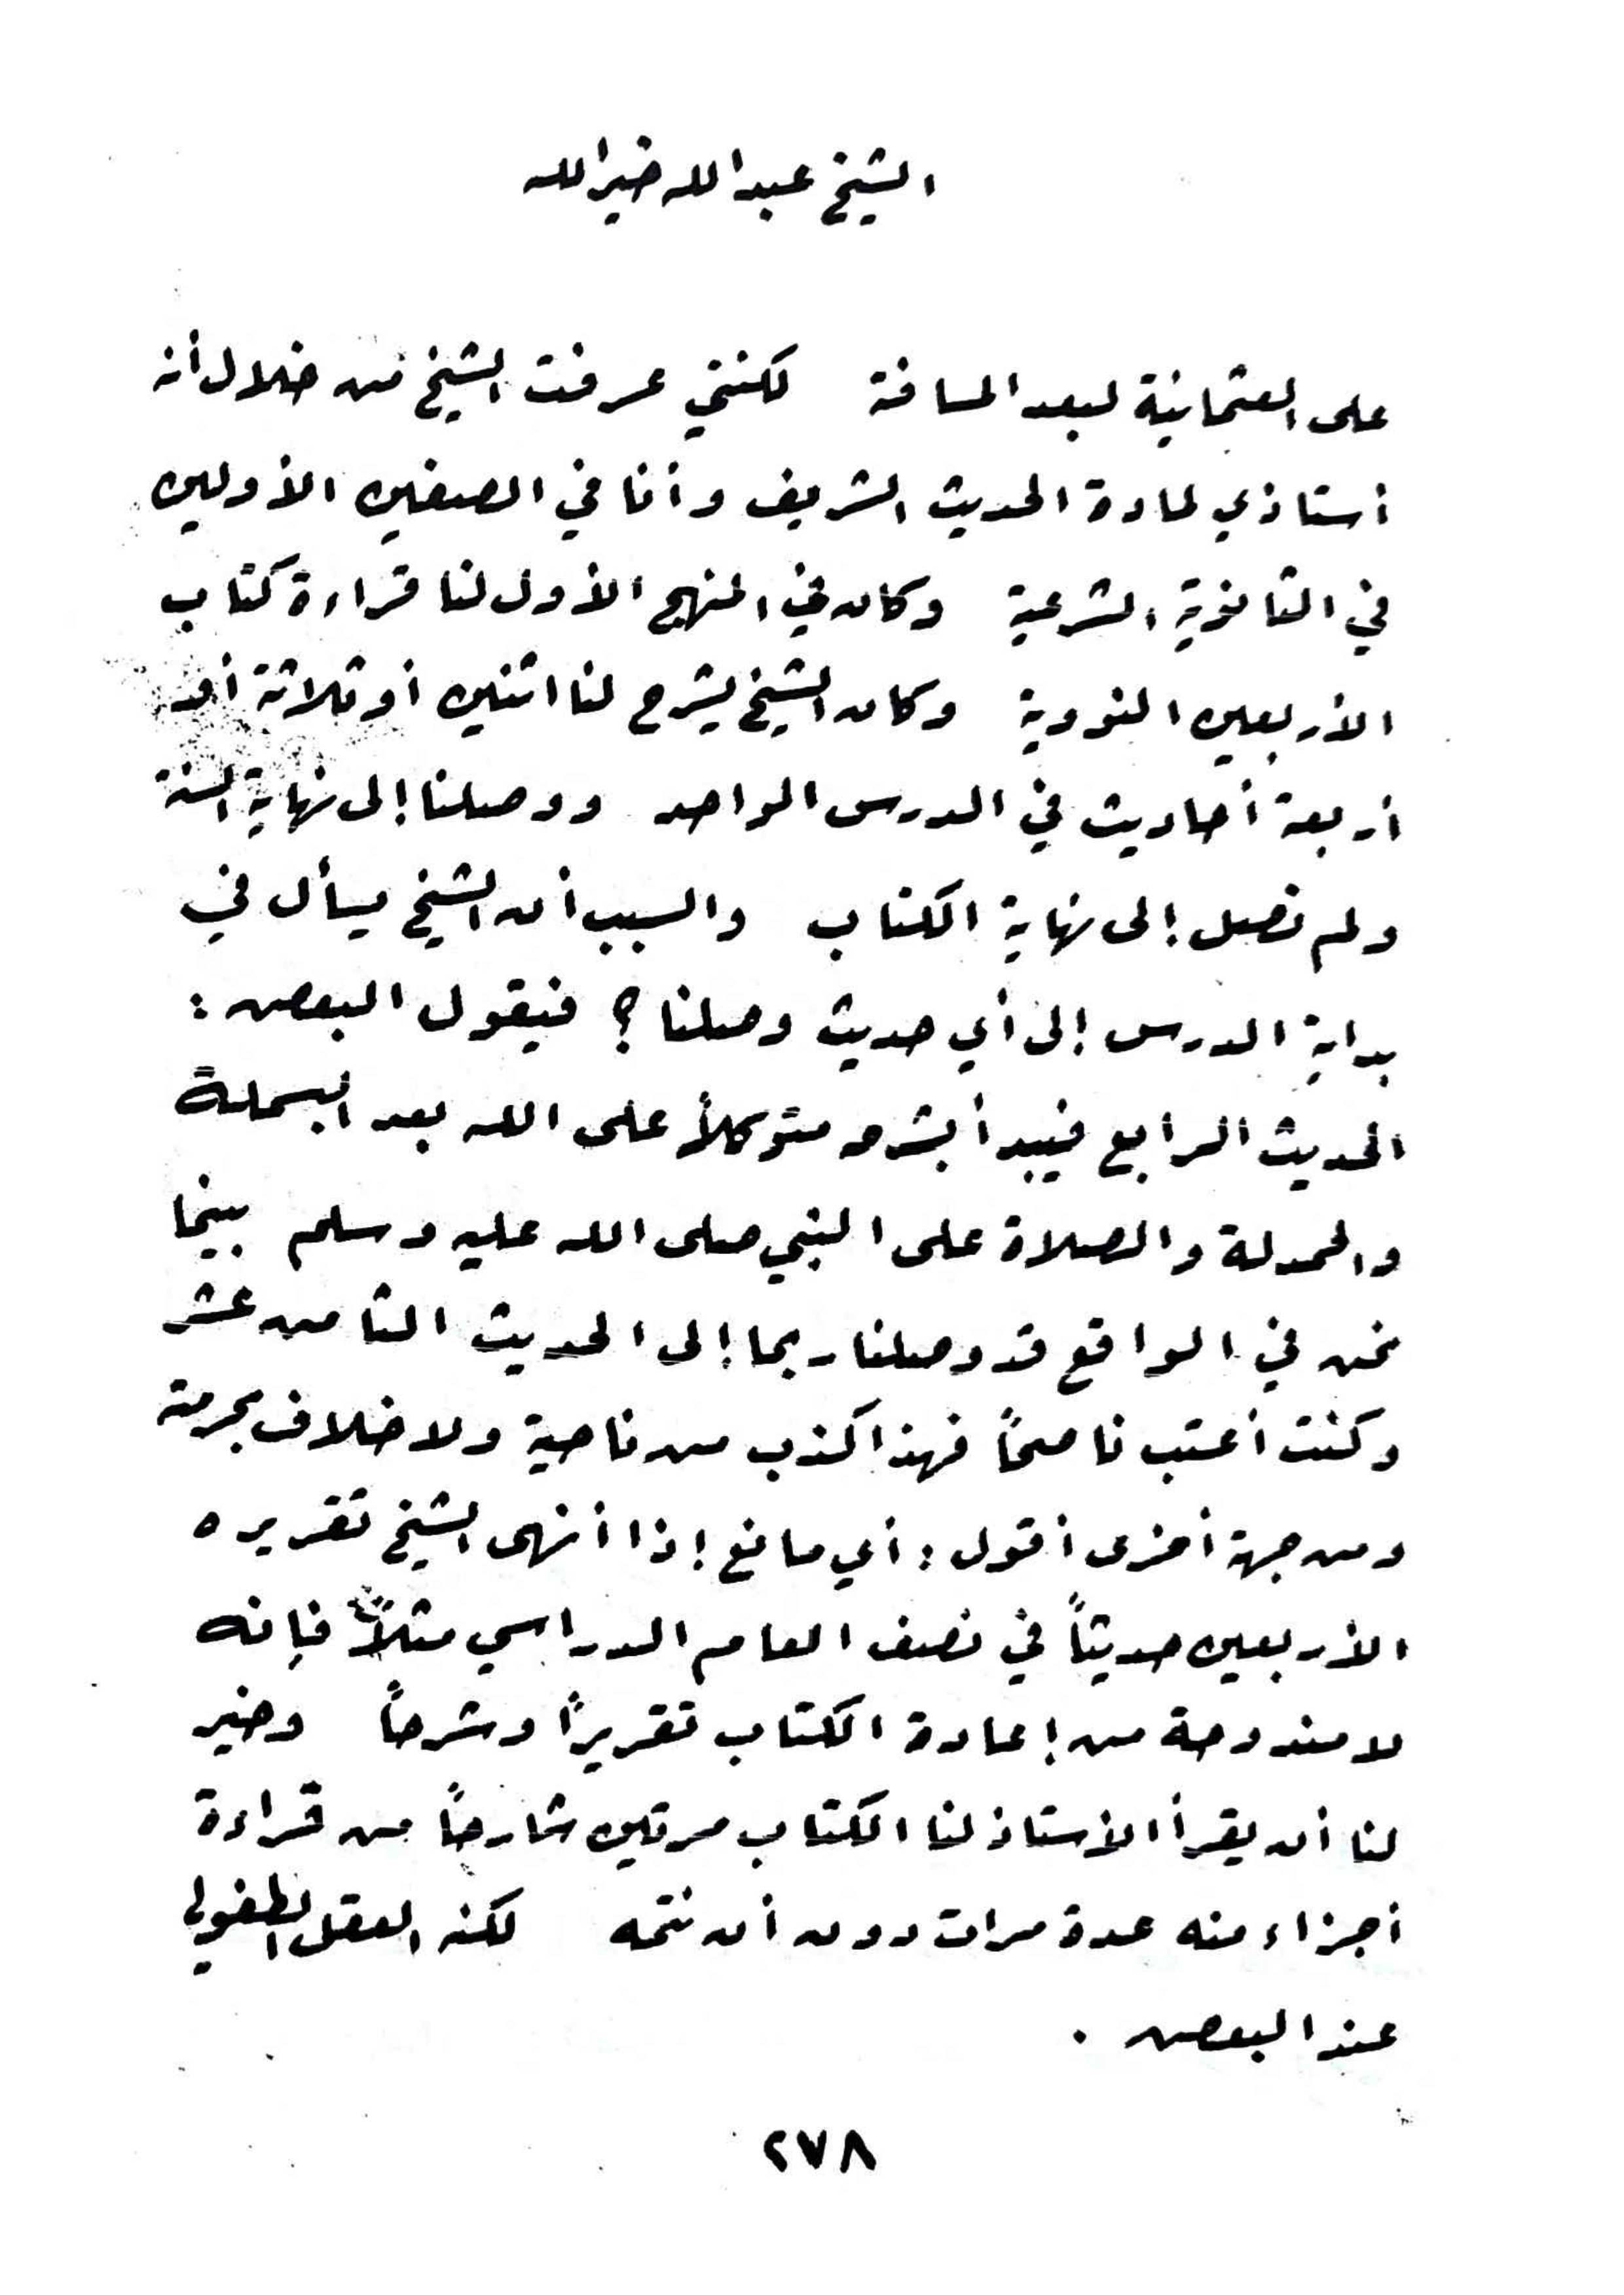 الشيخ عبد الله خير الله
على العثمانية لبعد المسافة لكنني عرفت الشيخ من خلال أنه
أستاذي لمادة الحديث الشريف وأنا في الصفين الأولين
في الثانوية الشرعية وكان في المنهج الأول لنا قراءة كتاب
الأربعين النووية وكان الشيخ يشرح لنا اثنين أو ثلاثة أو
أربعة أحاديث في الدرس الواحد ووصلنا إلى نهاية السنة
ولم نصل إلى نهاية الكتاب والسبب أن الشيخ يسأل في
بداية الدرس إلى أي حديث وصلنا؟ فيقول البعض :
الحديث الرابع فيبدأ بشرحه متوكلاً على الله بعد البسملة
والحمدلة والصلاة على النبي صلى الله عليه وسلم بينما
نحن في الواقع قد وصلنا ربما إلى الحديث الثامن عشر
وكنت أعتب ناصحاً فهذا كذب من ناحية ولا خلاف بحرمته
ومن جهة أخرى أقول : أي مانع إذا أنهى الشيخ تقريره
الأربعين حديثاً في نصف العام الدراسي مثلاً فإنه
لا مندوحة من إعادة الكتاب تقريراً وشرحاً وخير
لنا أن يقرأ الأستاذ لنا الكتاب مرتين شارحاً من قراءة
أجزاء منه عدة مرات دون أن نتمه لكنه العقل الطفولي
عند البعض .
٢٧٨